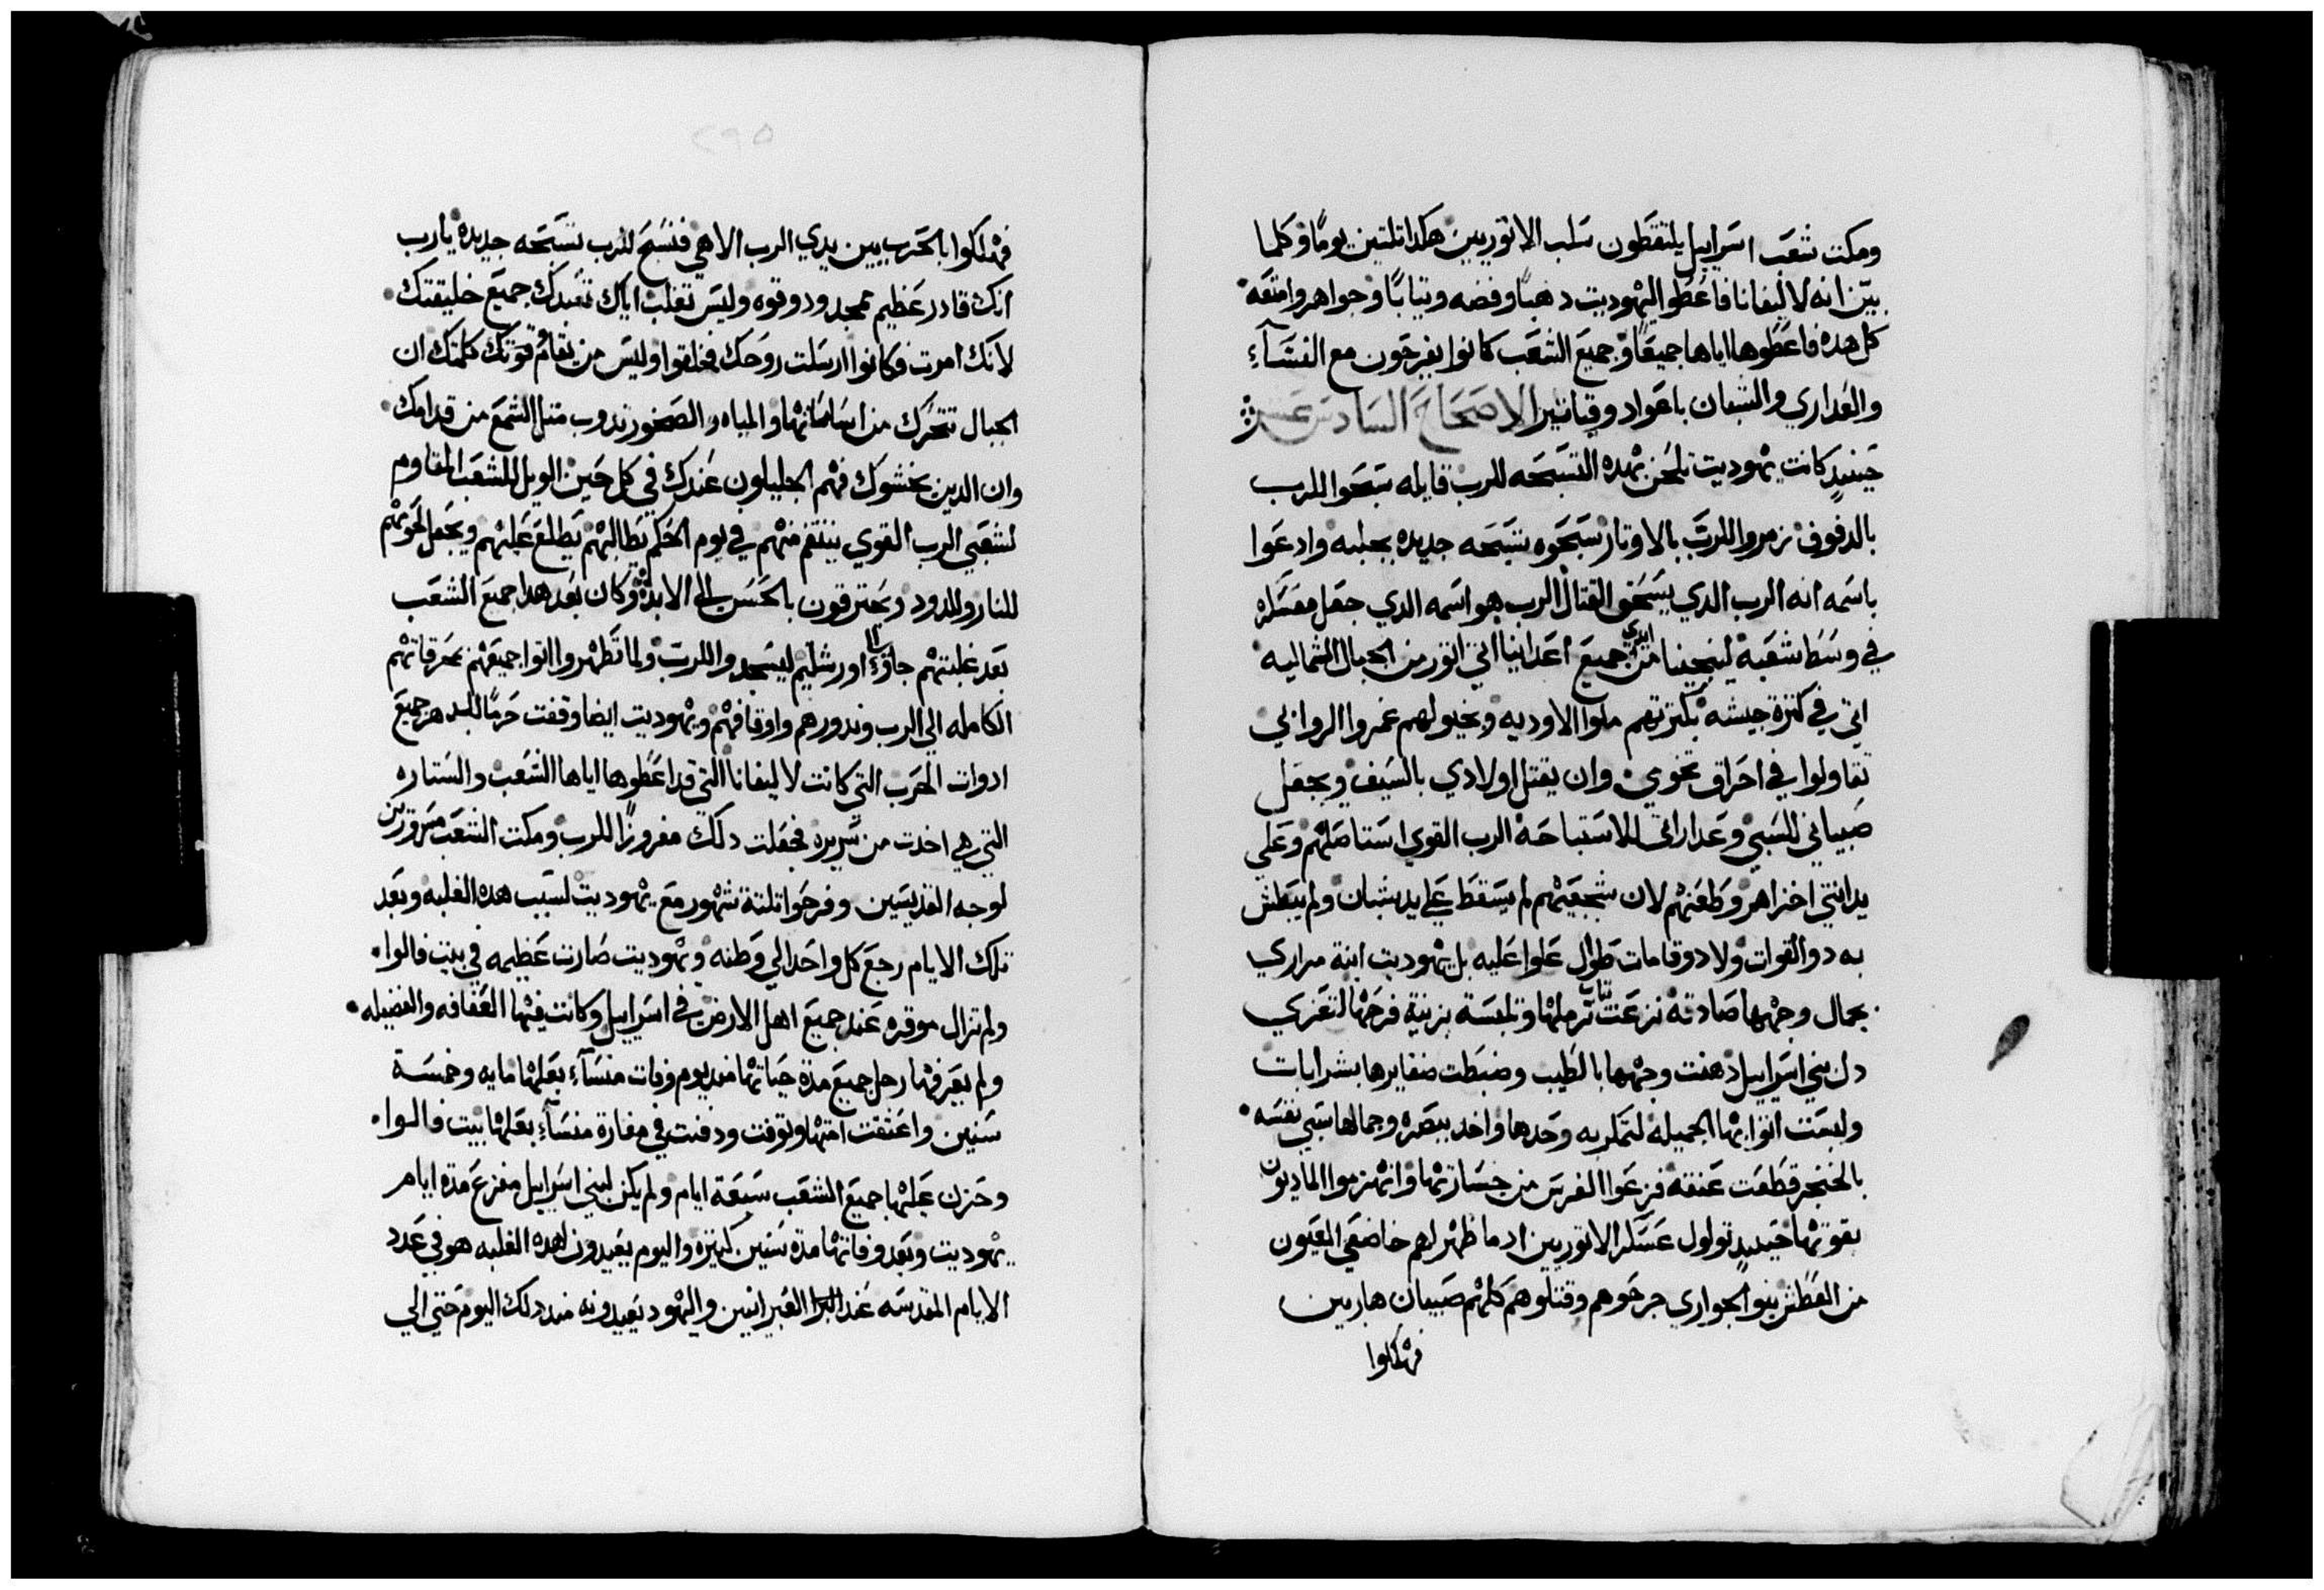 ومكت شعب اسراييل يلتقطون سلب الاتوريين هكدا تلتين يومًا وكلما
بيّن انه لاليفانا فاعطوا ليهوديت دهبًا وفضه وتيابًا وجواهر وامتعه
كل هده فاعطوها اياها جميعًا وجميع الشعب كانوا يفرحون مع النسآء
والعداري والشبان باعواد وقياتير الاصحاح السادس عشر
حينيدٍ كانت يهوديت تلحن بهده التسبحه للرب قايله سبحوا للرب
بالدفوف زمروا للرب بالاوتار سبحوه تسبحه جديده بجلبه وادعوا
باسمه انه الرب الدي يسحق القتال الرب هو اسمه الدي جعل معسكره
في وسط شعبه لينجينا من ايدي جميع اعداينا اتي اتور من الجبال الشماليه
اتي في كترة جيشه بكترتهم ملوا الاوديه وبخيولهم غمروا الروابي
تقاولوا في احراق تخومي وان يقتل اولادي بالسيف ويجعل
صبياني للسبي وعداراتي للاستباحه الرب القوي استاصلهم وعلي
يد انتي اخزاهم وطعنهم لان شجيعهم لم يسقط علي يد شبان ولم يبطش
به دوا القوات ولا دو قامات طوال علوا عليه بل يهوديت ابنة مراري
بجمال وجهها صادته نزعت تياب ترملها وتلبست بزينة فرحها لتعزي
دل بني اسراييل دهنت وجهها بالطيب وضبطت ضفايرها بشرابات
ولبست اتوابها الجميله لتمكر به وحدها واخد ببصره وجمالها سبي نفسه
بالخنجر قطعت عنقه فزعوا الفرس من جسارتها وانهزموا الماديون
بقوتها حينيدٍ تولول عسكر الاتوريين اد ما ظهر لهم خاضعي العيون
من العطش بنوا الجواري جرحوهم وقتلوهم كلهم صبيان هاربين
فهلكوا
٢٩٥
فهلكوا بالحرب بين يدي الرب الاهي فنسبح للرب تسبحه جديده يارب
انك قادر عظيم ممجد ودو قوه وليس تغلب اياك تتعبدك جميع خليقتك
لانك امرت فكانوا ارسلت روحك فخلقوا وليس من يقاوم قوتك كلمتك ان
الجبال تتحرك من اساساتها والمياه والصخور تدوب متل الشمع من قدامك
وان الدين يخشوك فهم الجليلون عندك في كل حين الويل للشعب المقاوم
لشعبي الرب القوي ينتقم منهم في يوم الحكم يطالبهم يطلع عليهم ويجعل لحومهم
للنار والدود ويحترقون بالحس الي الابد وكان بعد هدا جميع الشعب
بعد غلبتهم جاوءا الي اورشليم ليسجدوا للرب ولما تطهروا اتوا جميعهم بمحرقاتهم
الكامله الي الرب وندورهم واوقافهم ويهوديت ايضا وقفت حرمًا للدهر جميع
ادوات الحرب التي كانت لاليفانا التي قد اعطوها اياها الشعب والستاره
التي هي اخدت من سريره فجعلت دلك مفروزًا للرب ومكت الشعب مسرورين
لوجه القديسين وفرحوا تلتة شهور مع يهوديت لسبب هده الغلبه وبعد
تلك الايام رجع كل واحد الي وطنه ويهوديت صارت عظيمه في بيت فالوا
ولم تزال موقره عند جميع اهل الارض في اسراييل وكانت فيها العفافه والفضيله
ولم يعرفها رجل جميع مدة حياتها مند يوم وفات منسآء بعلها مايه وخمسة
سنين واعتقت امتها وتوفت ودفنت في مغارة منسآء بعلها بيت فالوا
وحزن عليها جميع الشعب سبعة ايام ولم يكن لبني اسراييل مفزع مدة ايام
يهوديت وبعد وفاتها مدة سنين كتيره واليوم يعيدون لهده الغلبه هو في عدد
الايام المقدسه عند العبرانيين واليهود يعيدونه مند دلك اليوم حتي الي